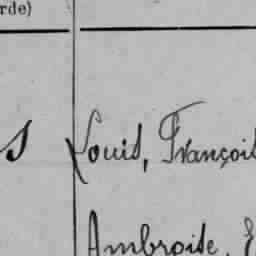 rde)
s Louis, François
Ambroise, E